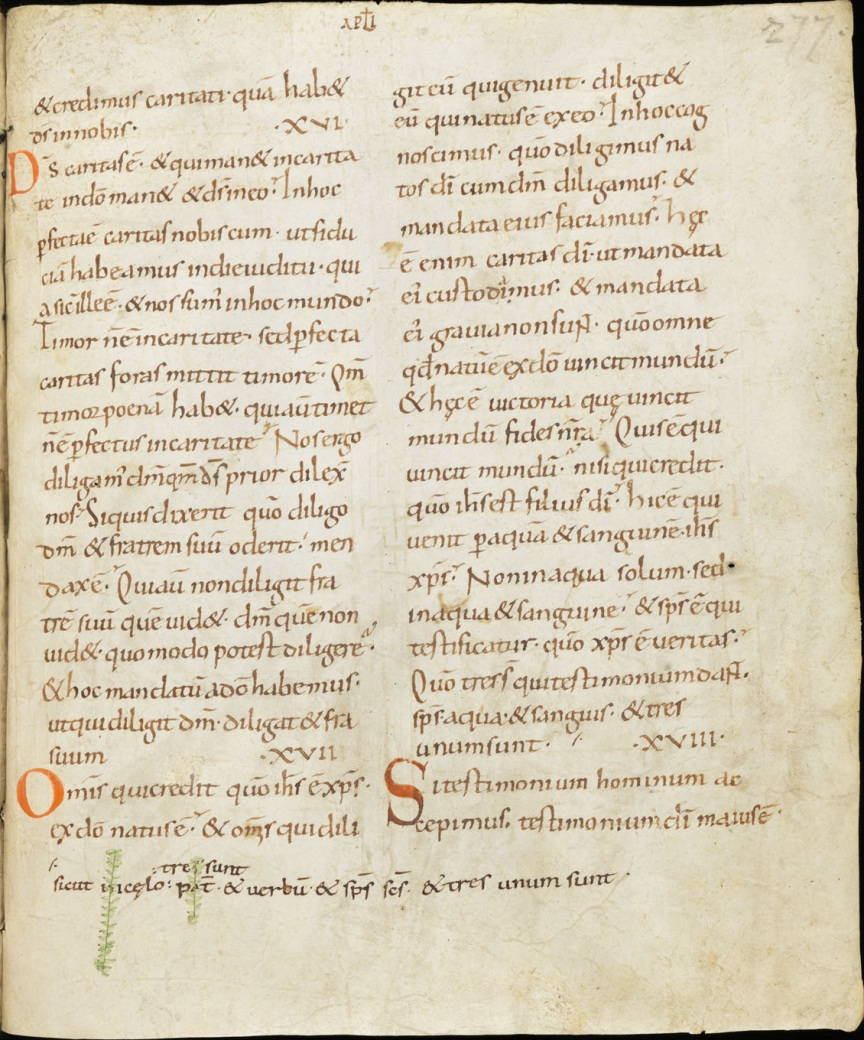 APŁI
277.
&credimus caritati· quā hab&
ds innobis· ·XVI·
D̄s caritasē· & quiman& incarita
te indōman& & ds̄ineo· Inhoc
ꝑfectaē caritas nobiscum· utfidu
ciā habeamus indieiudicii· qui
a sic̄illeē· & nos sum' inhoc mundo·
Timor nēincaritate· sedꝑfecta
caritas foras mittit timorē· Qm̄
timor poenā hab&· quiaūtimet
nēꝑfectus incaritate· Nosergo
diligam' dm̄qm̄ds̄ prior dilex̄
nos· Siquis dixerit quō diligo
dm̄ & fratrem suū oderit· men
daxē· Quiaū nondiligit fra
trē suū quē uid&· dm̄quē non
uid&· quomodo potest diligere·
& hoc mandatū adōhabemus·
utquidiligit dm̄· diligat & fra
suum ·XVII
Omīs quicredit quō ih̄s ē xp̄s·
exdō natusē· & om̄s quidili
git eū quigenuit· diligit&
eū quinatusē exeo· Inhoc cog
noscimus· quō diligimus na
tos dī cumdm̄ diligamus· &
mandata eius faciamus· hęc
ē enim caritas dī· utmandata
ei' custodimus· & mandata
ei' grauia nonsuN̄· quō omne
qd̄natūē exdō uincitmundū·
& hęcē uictoria quę uincit
mundū fides nr̄a· Quisēqui
uincit mundū· nisiquicredit·
quō ih̄s est filius dī· hicē qui
uenit ꝑ aquā & sanguinē· ih̄s
xp̄s· Noninaqua solum· sed
inaqua & sanguine· & sp̄s ē qui
testificatur· quō xp̄s ē ueritas·
Quō tres s̄ quitestimoniumdaN̄·
sp̄s· aqua· & sanguis· & tres
unumsunt· ·XVIII·
Sitestimonium hominum ac
cepimus· testimoniumdī maiusē·
tres sunt
sicut incęlo· pat̄· & uerbū· & sp̄s scs̄· & tres unum sunt·